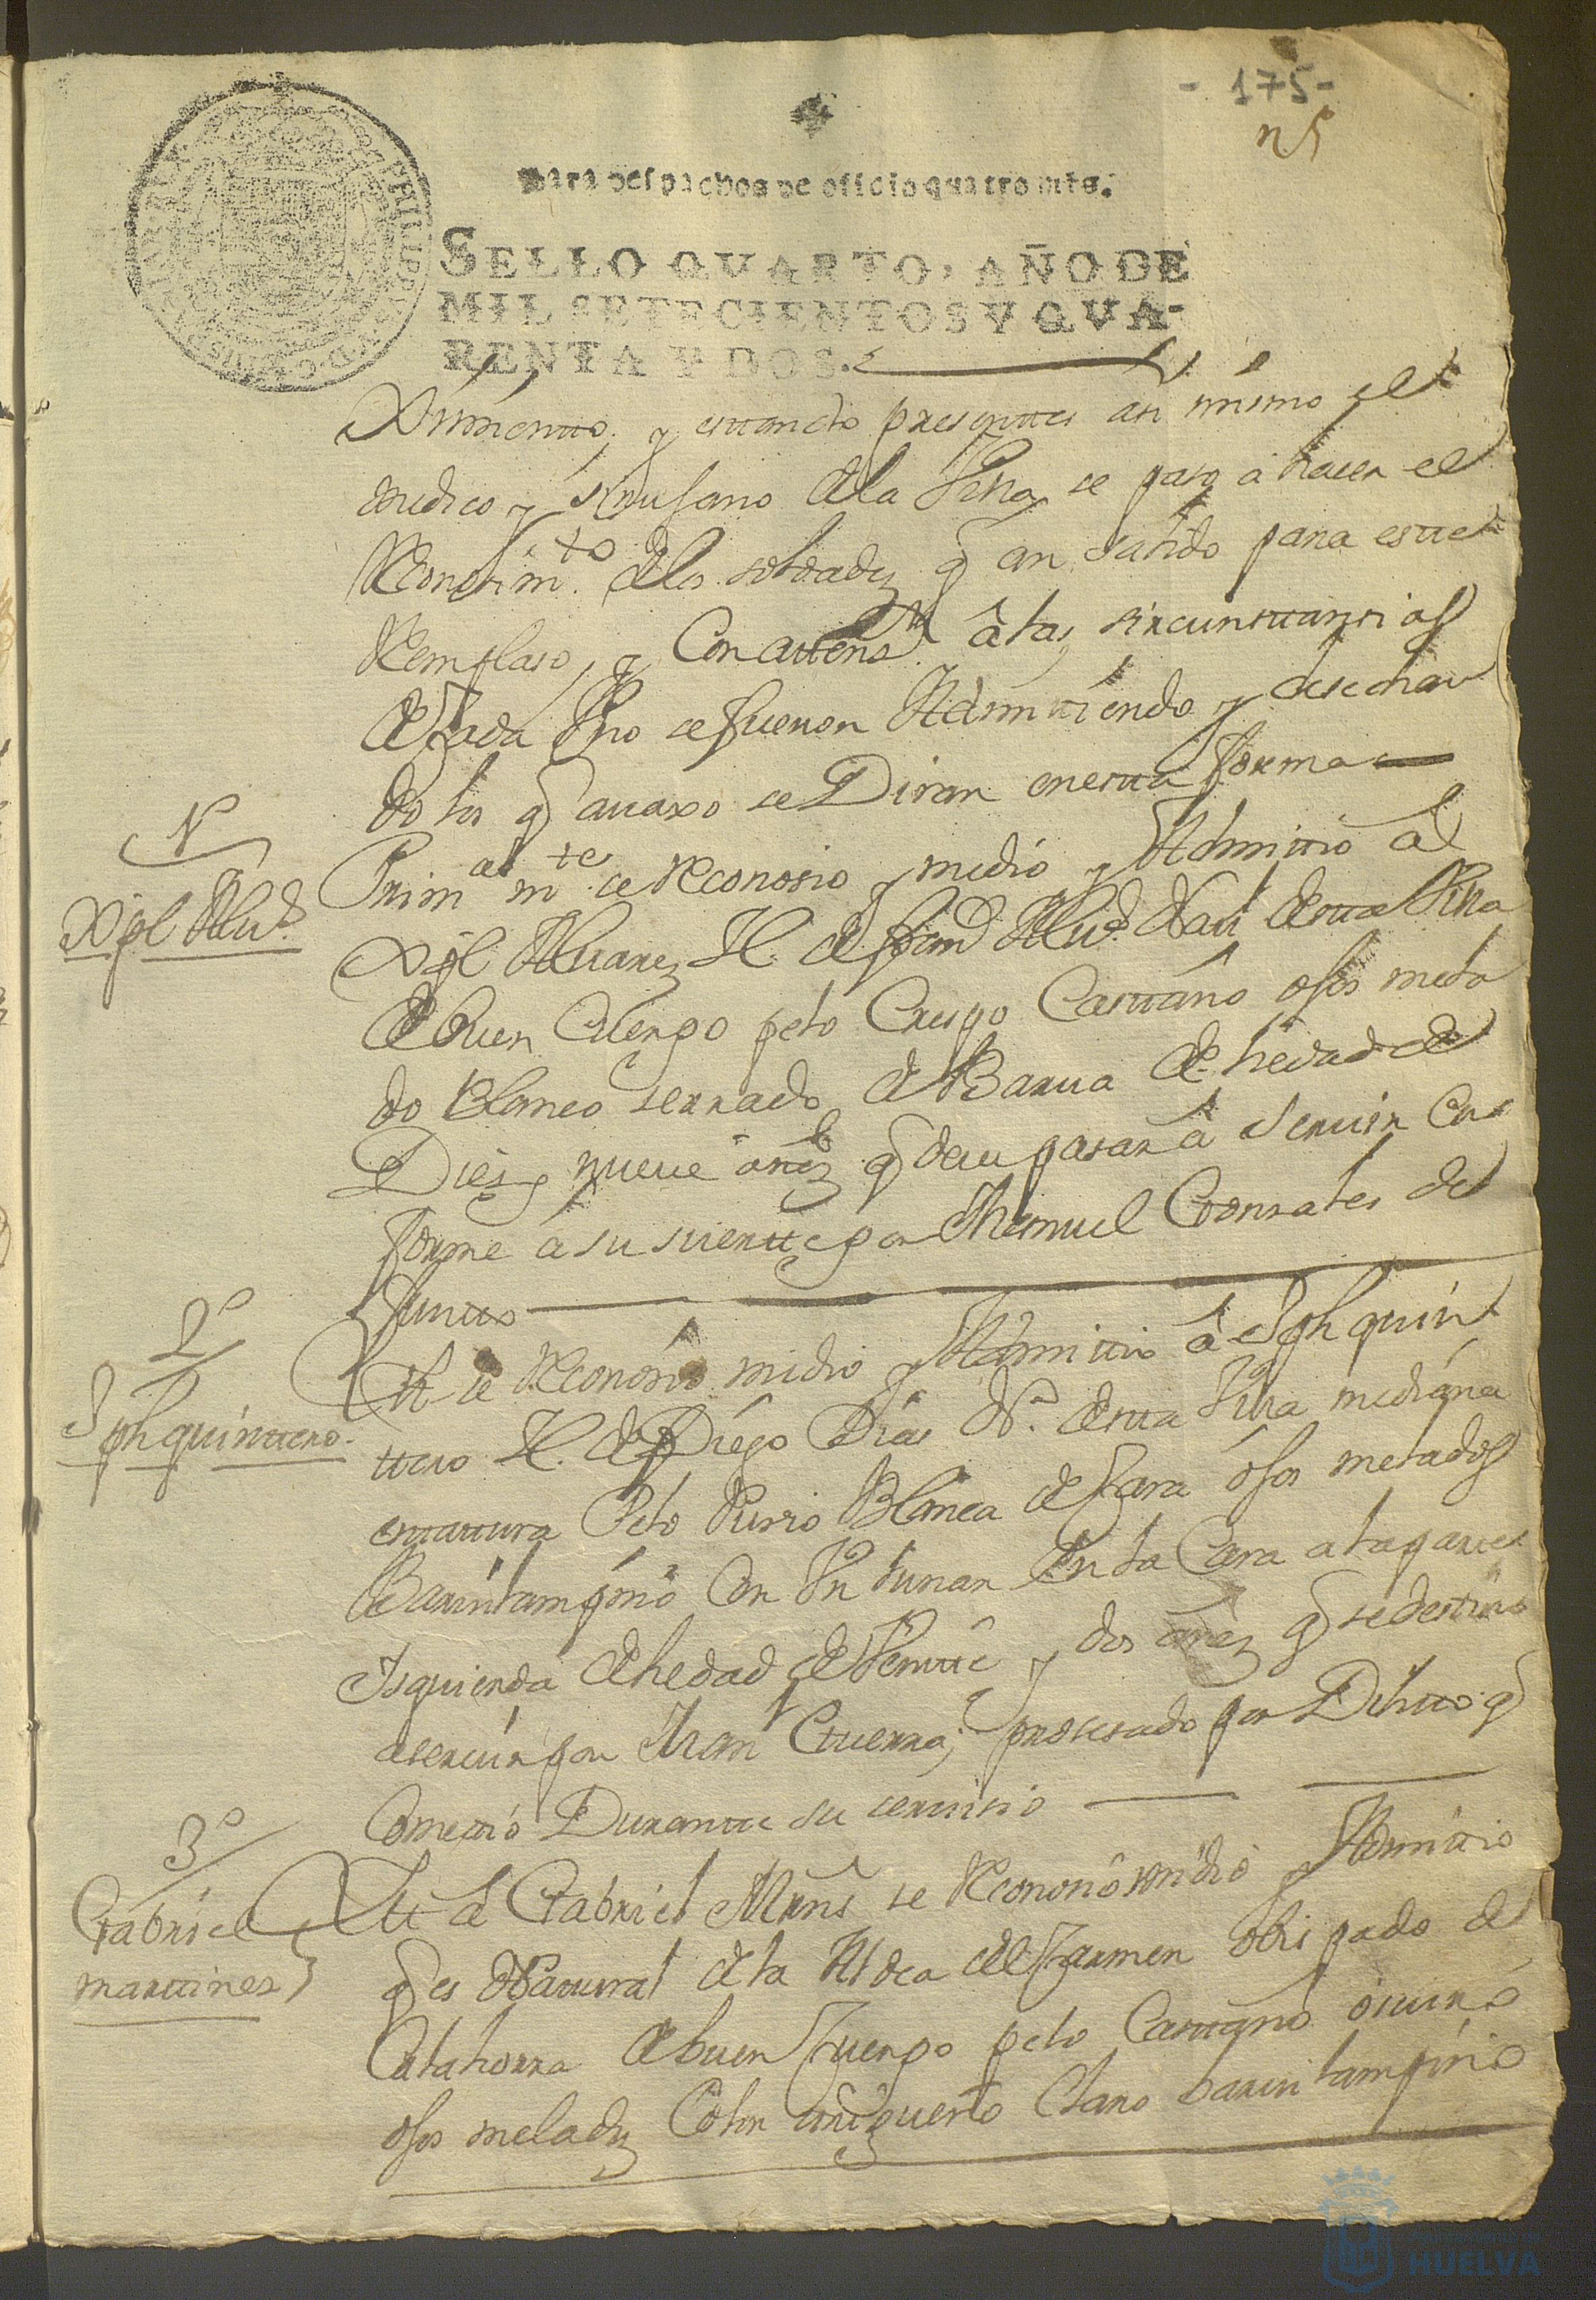 - 175 -
n 5
Para despachos de oficio quatro mrs.
SELLO QVARTO, AÑO DE
MIL SETECIENTOS Y QVA-
RENTA Y DOS.
y estando presentes asi mismo el
medico y sirujano de la Villa, se paso á hacer el
Reconosimto. de los soldados q an salido para este
Remplaso, y Con attensn. á las sircunstansias
de Cada Vno se fueron Admitiendo y desechan
do los q avaxo se Diran en esta forma
1º
Primeramte. se Reconosio y midio y Admitio á
Xpl Aluz.
Xpl Aluarez H. de Aluz. Natl. desta Villa
de buen Cuerpo pelo Crespo Castaño ojos mela
do Blanco serrado de Barua de hedad de
Dies y nueve años q deve pasar á servir Con
forme á su suerte por Manuel Gonsales de
Juntto
2º
Jph quinttero.
Ytt se Reconosio midio y Admitio á Jph quin
ttero H. de Diego Dias Nl. desta Villa mediana
estatura Pelo Rubio Blanca de Cara ojos melados
Barvilampiño Con Vn lunar En la Cara a la parte
Isquierda de hedad de Veinte y dos años q se destino
a servir por Guerra, prosesado por Delito q
Cometio Durante su servisio
3º
Gabriel
martines
Ytt á Gabriel Mrns se Reconosio midio y Admitio
q es Natural de la Aldea del Carmen obispado de
Calahorra de buen Cuerpo pelo Castaño oscuro
ojos melados Color trigueño Claro barvilampiño
HUELVA